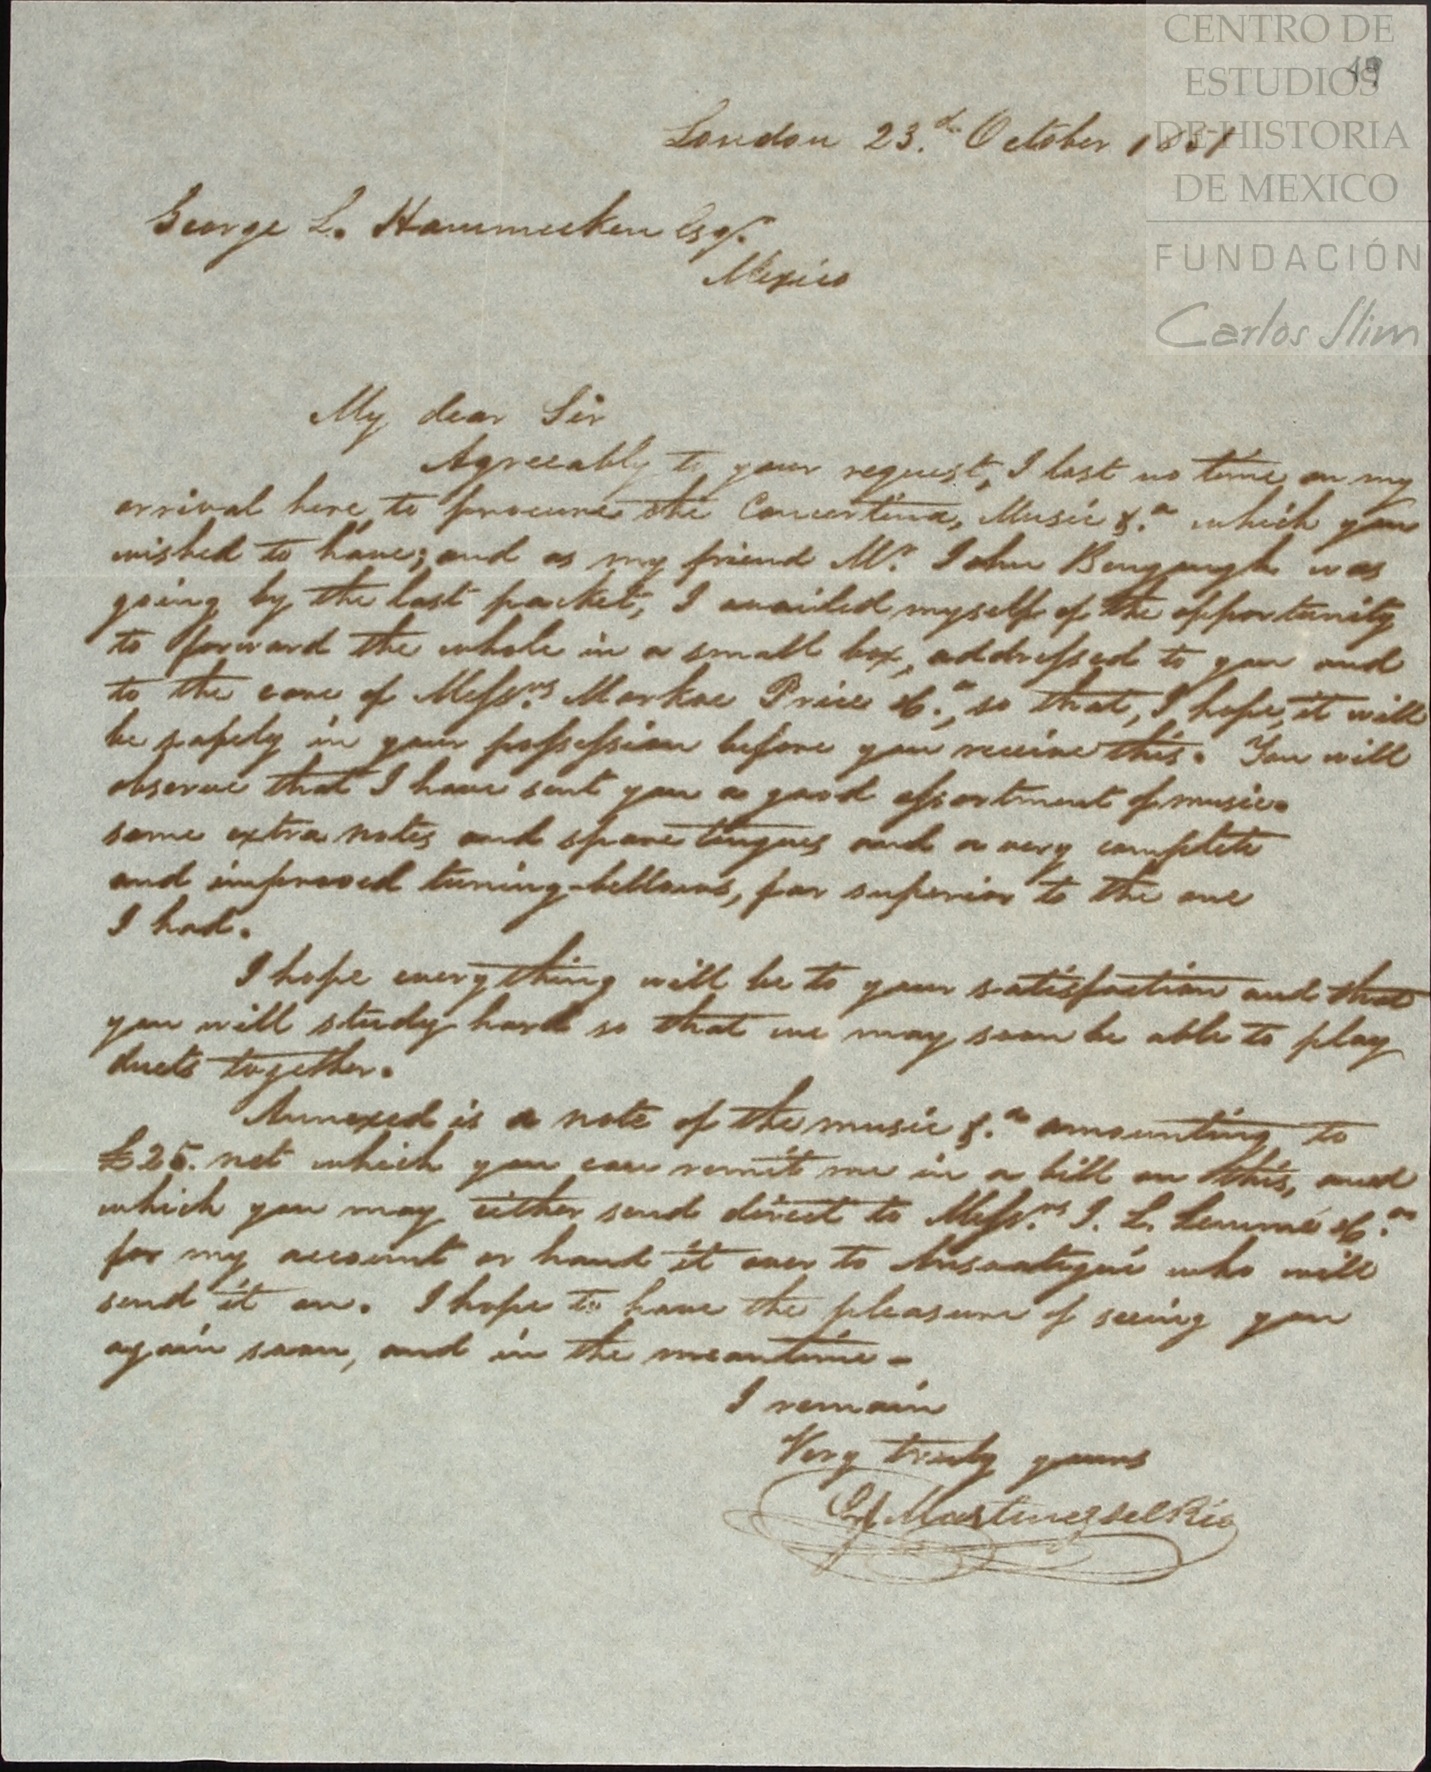 CENTRO DE
ESTUDIOS
DE HISTORIA
DE MEXICO
FUNDACIÓN
Carlos Slim
49
London 23.d October 1851
George L. Hammecken Esqr.
Mexico
My dear Sir
Agreeably to your request, I lost no time on my
arrival here to procure the Concertina, Music &.a which you
wished to have; and as my friend Mr. John Bengough was
going by the last packet, I availed myself of the opportunity
to forward the whole in a small box, addressed to you and
to the care of Messrs. Price &C.o, so that, I hope, it will
be safely in your possession before you receive this. You will
observe that I have sent you a good assortment of music.
some extra notes and spare tongues and a very complete
and improved tuning-bellows, far superior to the one
I had.
I hope everything will be to your satisfaction and that
you will study hard so that we may soon be able to play
duets together.
Annexed is a note of the music &.a amounting to
£25. net which you can remit me in a bill on this, and
which you may either send direct to Messrs. I. L. Lemmé &C.o
for my account or hand it over to Ansoategui who will
send it on. I hope to have the pleasure of seeing you
again soon, and in the meantime -
I remain
Very truly yours
Martinez del Rio